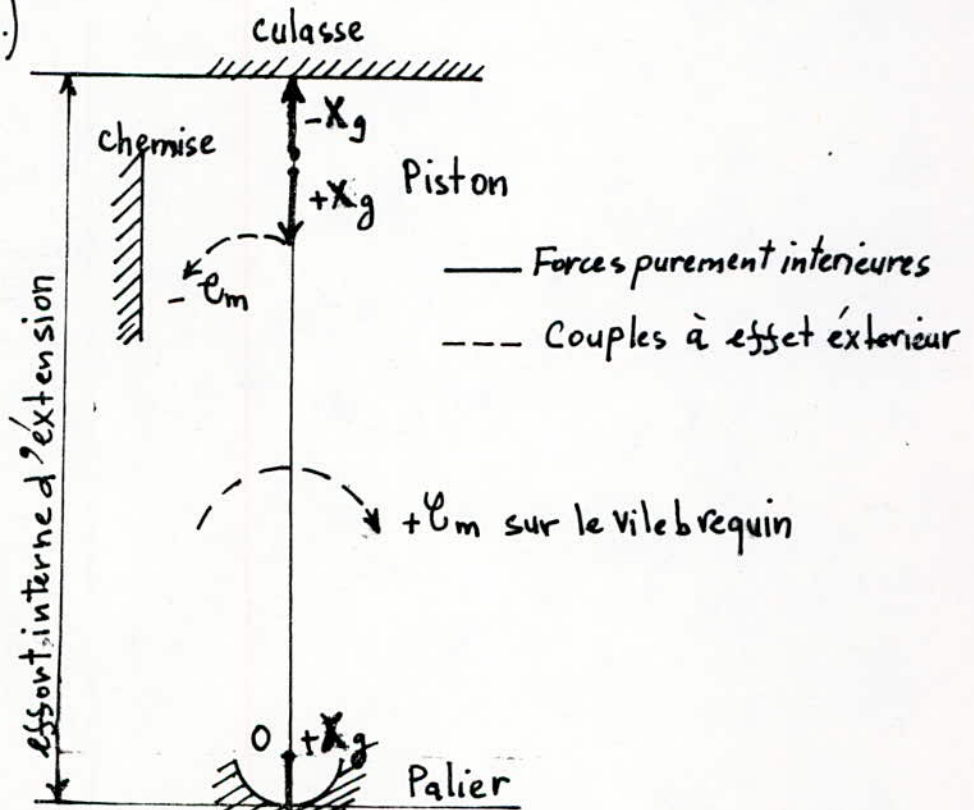 .)
culasse
-Xg
chemise
Piston
+Xg
Forces purement interieures
- Cm
Couples à effet éxterieur
effort interne d'éxtension
+Cm sur le vilebrequin
O
+Xg
Palier